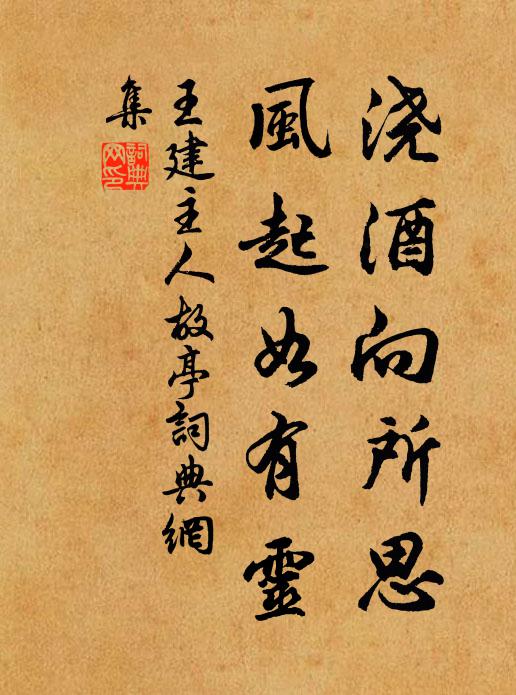 浇酒向所思
風起如有靈
王建主人故亭詞典網
集
詞典
网印